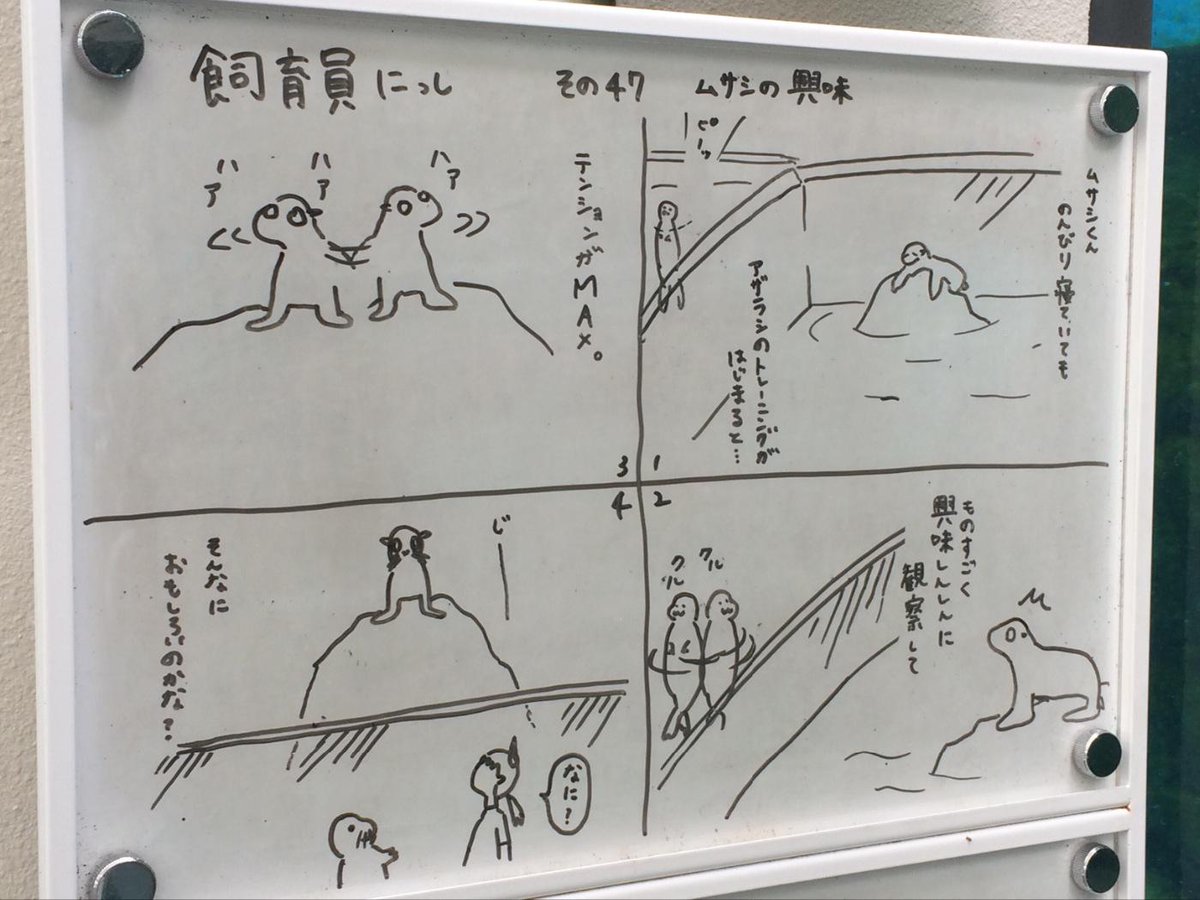 飼育員にっし その47 ムサシの興味
1
ムサシくん
のんびり寝ていても
ピーッ
アザラシのトレーニングが
はじまると…
2
ものすごく
興味しんしんに
観察して
クル
クル
3
テンションがMAX。
ハァ
ハァ
ハァ
4
じー
そんなに
おもしろいのかな?
なに?